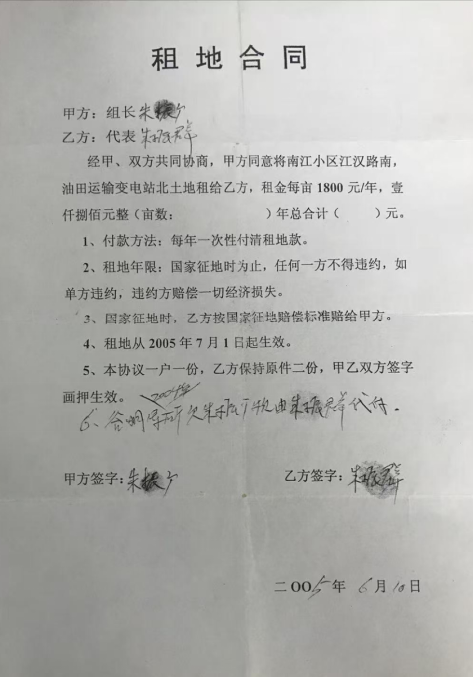 租地合同
甲方：组长朱
乙方：代表朱振群
经甲、双方共同协商，甲方同意将南江小区江汉路南，
油田运输变电站北土地租给乙方，租金每亩1800元/年，壹
仟捌佰元整（亩数：　　　）年总合计（　　）元。
1、付款方法：每年一次性付清租地款。
2、租地年限：国家征地时为止，任何一方不得违约，如
单方违约，违约方赔偿一切经济损失。
3、国家征地时，乙方按国家征地赔偿标准赔给甲方。
4、租地从2005年7月1日起生效。
5、本协议一户一份，乙方保持原件二份，甲乙双方签字
画押生效。
6、合明 欠朱振 款由朱振群代付.
甲方签字：朱
乙方签字：朱振群
二OO5年6月10日